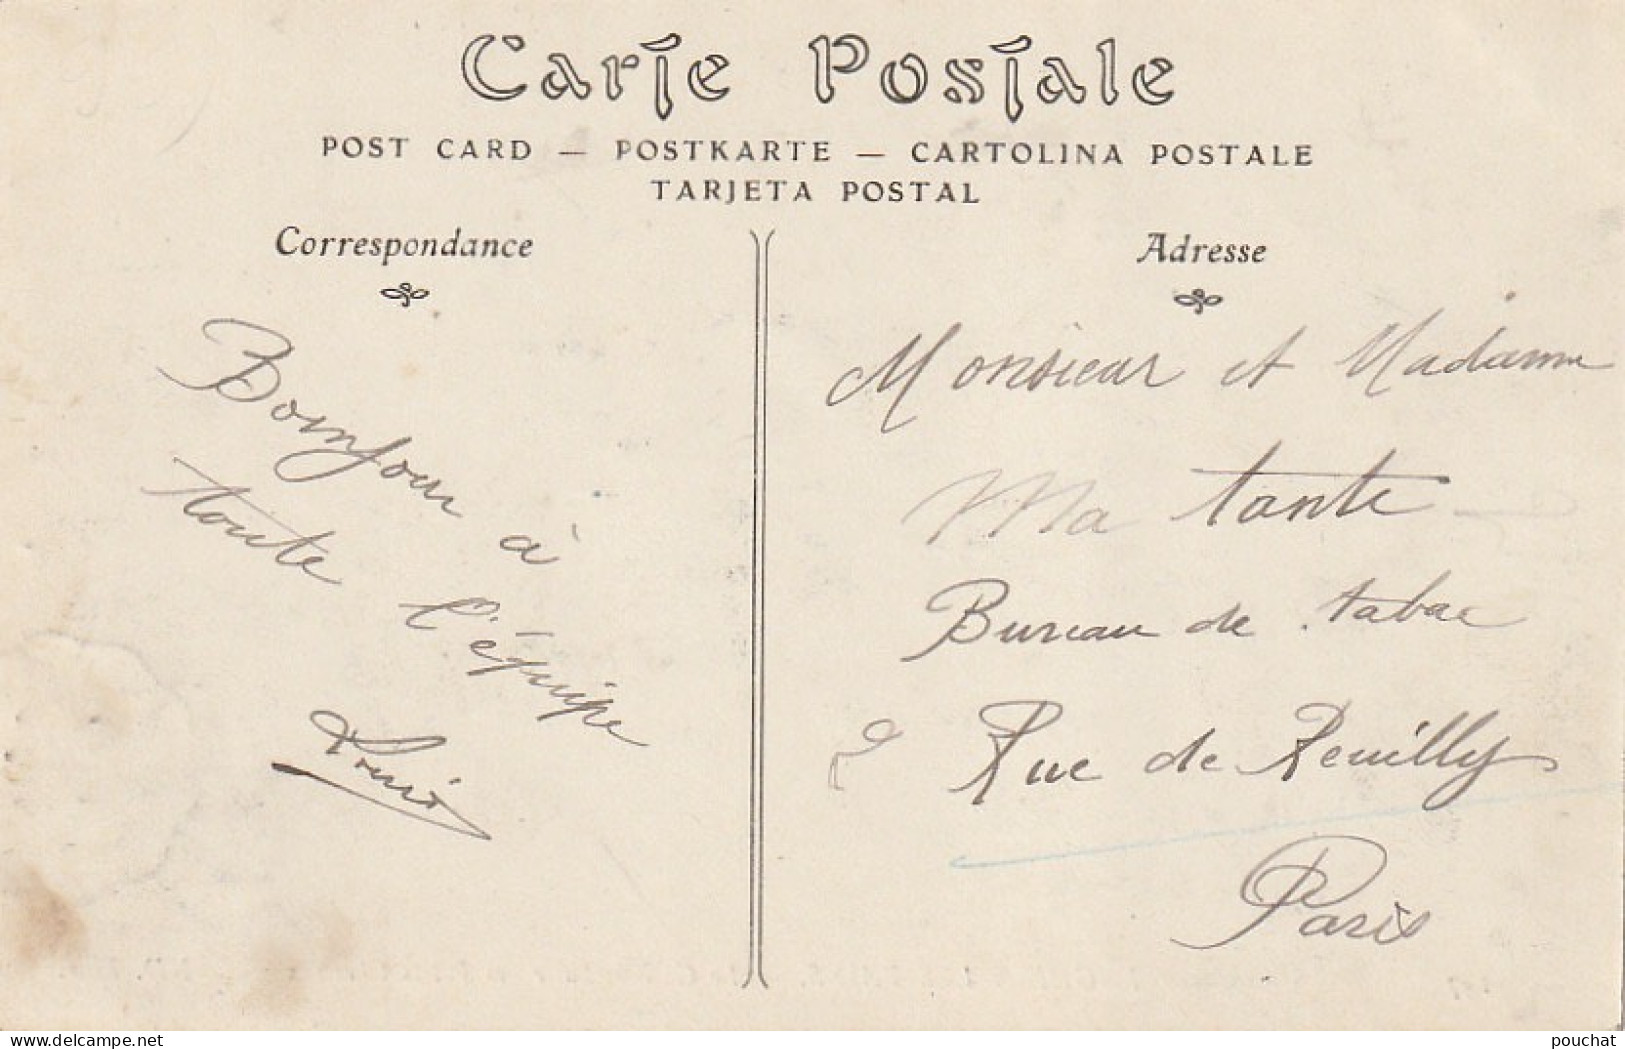 Carte Postale
POST CARD — POSTKARTE — CARTOLINA POSTALE
TARJETA POSTAL
Correspondance
Bomjour à
toute l'équipe
Louis
Adresse
Monsieur et Madame
Ma tante
Bureau de tabac
2 Rue de Reuilly
Paris
delcampe.net
pouchat